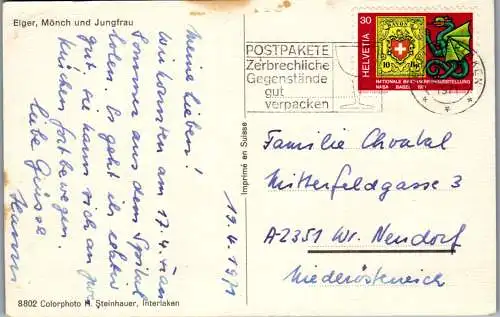 Eiger, Mönch und Jungfrau
Meine Lieben!
Wir konnten am 17.4.
aus dem Spital
holen. Es geht ihr relativ
gut, sie kann sich an zwei
Krücken fortbewegen.
Liebe Grüsse
19.4.1971
8802 Colorphoto H. Steinhauer, Interlaken
Imprimé en Suisse
POSTPAKETE
Zerbrechliche
Gegenstände
gut
verpacken
30
HELVETIA
NATIONALE BRIEFMARKENAUSSTELLUNG
NABA BASEL 1971
Familie Chvatal
Mitterfeldgasse 3
A2351 Wr. Neudorf
Niederösterreich